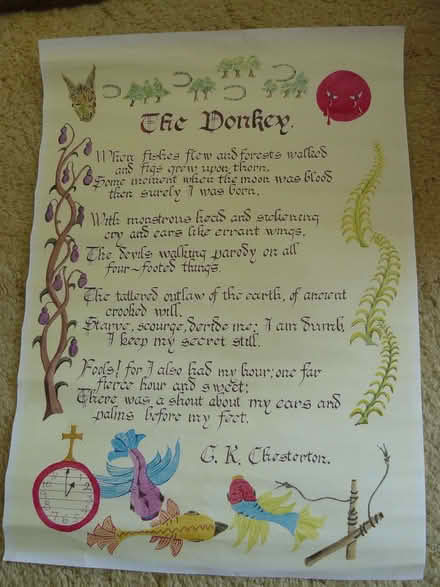 The Donkey.
When fishes flew and forests walked
and figs grew upon thorn,
Some moment when the moon was blood
then surely I was born.
With monstrous head and sickening
cry and ears like errant wings,
The devils walking parody on all
four-footed things.
The tattered outlaw of the earth, of ancient
crooked will,
Starve, scourge, deride me; I am dumb,
I keep my secret still.
Fools! for I also had my hour; one far
fierce hour and sweet;
There was a shout about my ears and
palms before my feet.
G. K. Chesterton.